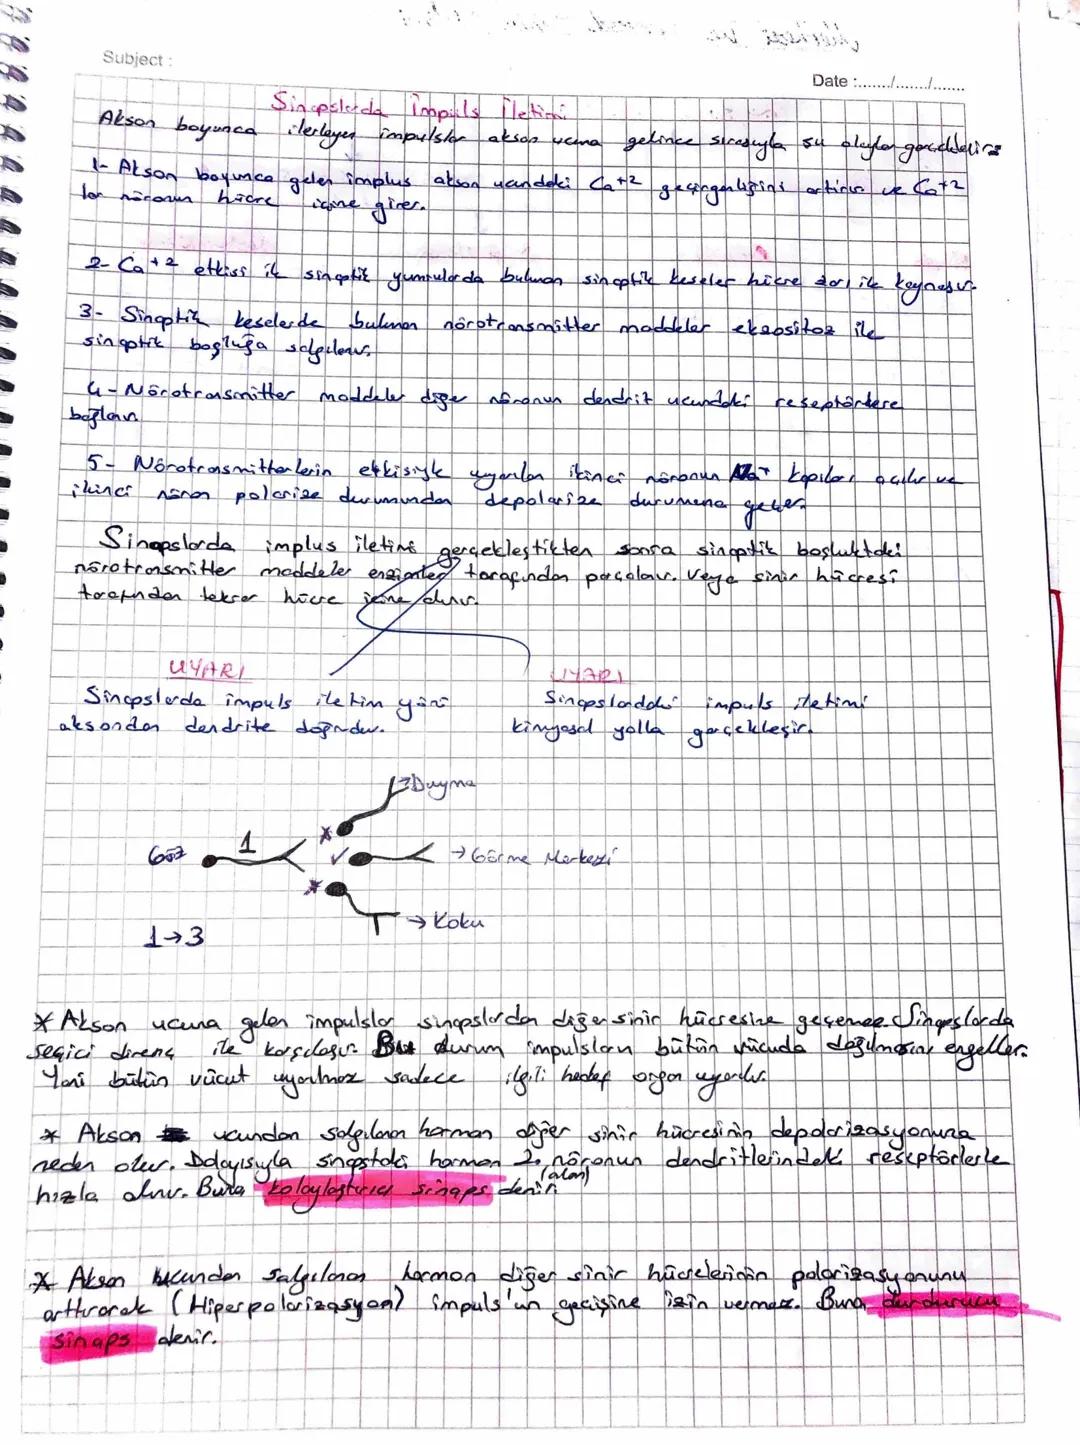 Subject :
Date :......../......../........
Sinapslarda İmpuls İletimi
Akson boyunca ilerleyen impulslar akson ucuna gelince sırasıyla şu olaylar gerçekleşir:
1- Akson boyunca gelen implus akson ucundaki Ca+2 geçirgenliğini artırır ve Ca+2
lar nöronun hücre içine girer.
2- Ca+2 etkisi ile sinaptik yumrularda bulunan sinaptik keseler hücre zarı ile kaynaşır.
3- Sinaptik keselerde bulunan nörotransmitter maddeler ekzositoz ile
sinaptik boşluğa salgılanır.
4- Nörotransmitter maddeler diğer nöronun dendrit ucundaki reseptörlere
bağlanır.
5- Nörotrasmitterlerin etkisiyle uyarılan ikinci nöronun Na+ kapıları açılır ve
ikinci nöron polarize durumundan depolarize durumuna geçer.
Sinapslarda implus iletimi gerçekleştikten sonra sinaptik boşluktaki
nörotransmitter maddeler enzimler tarafından parçalanır. Veya sinir hücresi
tarafından tekrar hücre içine alınır.
UYARI
Sinapslarda impuls iletim yönü
aksondan dendrite doğrudur.
UYARI
Sinapslardaki impuls iletimi
kimyasal yolla gerçekleşir.
→Duyma
Göz 1 → Görme Merkezi
→ Koku
1→3
* Akson ucuna gelen impulslar sinapslardan diğer sinir hücresine geçemez. Sinapslarda
seçici direnç ile karşılaşır. Bu durum impulsların bütün vücuda dağılmasını engeller.
Yani bütün vücut uyarılmaz sadece ilgili hedef organ uyarılır.
* Akson ucundan salgılanan hormon diğer sinir hücresinin depolarizasyonuna
neden olur. Dolayısıyla sinapstaki hormon 2. nöronun dendritlerindeki reseptörlerle
hızla alınır. Buna kolaylaştırıcı sinaps denir.
* Akson ucundan salgılanan hormon diğer sinir hücrelerinin polarizasyonunu
arttırarak (Hiperpolarizasyon) impuls'un geçişine izin vermez. Buna durdurucu
sinaps denir.